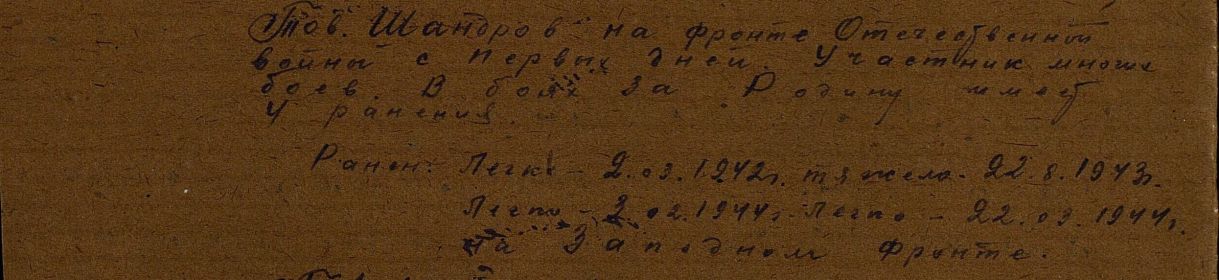 Тов. Шандров на фронте Отечественной
войны с первых дней. Участник многих
боев. В боях за Родину имеет
4 ранения.
Ранен: Легко – 2.03.1942г. тяжело - 22.8.1943г.
Легко – 3.02.1944г. Легко – 22.03.1944г.
на Западном фронте.